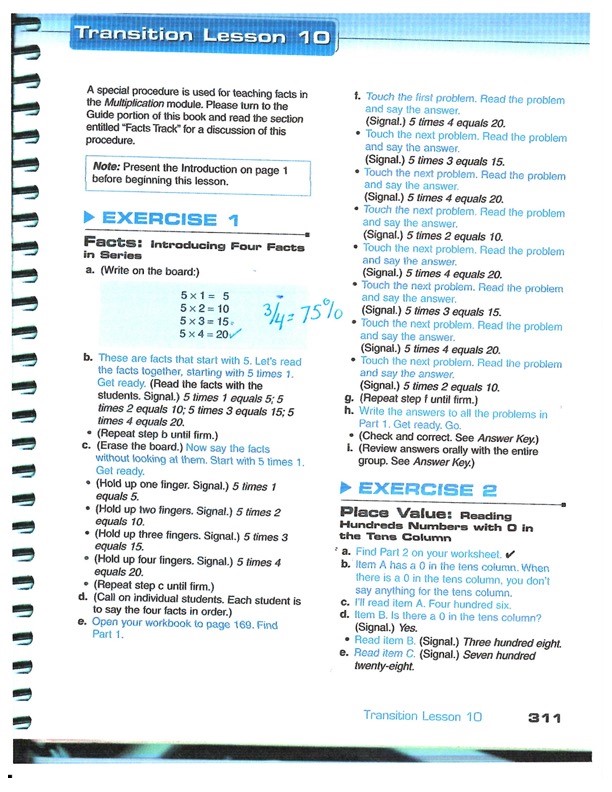 Transition Lesson 10
A special procedure is used for teaching facts in
the Multiplication module. Please turn to the
Guide portion of this book and read the section
entitled "Facts Track" for a discussion of this
procedure.
Note: Present the Introduction on page 1
before beginning this lesson.
EXERCISE 1
Facts: Introducing Four Facts
in Series
a. (Write on the board:)
5 × 1 = 5
5 × 2 = 10
5 × 3 = 15
5 × 4 = 20 ✓
3/4 = 75%
b. These are facts that start with 5. Let's read
the facts together, starting with 5 times 1.
Get ready. (Read the facts with the
students. Signal.) 5 times 1 equals 5; 5
times 2 equals 10; 5 times 3 equals 15; 5
times 4 equals 20.
• (Repeat step b until firm.)
c. (Erase the board.) Now say the facts
without looking at them. Start with 5 times 1.
Get ready.
• (Hold up one finger. Signal.) 5 times 1
equals 5.
• (Hold up two fingers. Signal.) 5 times 2
equals 10.
• (Hold up three fingers. Signal.) 5 times 3
equals 15.
• (Hold up four fingers. Signal.) 5 times 4
equals 20.
• (Repeat step c until firm.)
d. (Call on individual students. Each student is
to say the four facts in order.)
e. Open your workbook to page 169. Find
Part 1.
f. Touch the first problem. Read the problem
and say the answer.
(Signal.) 5 times 4 equals 20.
• Touch the next problem. Read the problem
and say the answer.
(Signal.) 5 times 3 equals 15.
• Touch the next problem. Read the problem
and say the answer.
(Signal.) 5 times 4 equals 20.
• Touch the next problem. Read the problem
and say the answer.
(Signal.) 5 times 2 equals 10.
• Touch the next problem. Read the problem
and say the answer.
(Signal.) 5 times 4 equals 20.
• Touch the next problem. Read the problem
and say the answer.
(Signal.) 5 times 3 equals 15.
• Touch the next problem. Read the problem
and say the answer.
(Signal.) 5 times 4 equals 20.
• Touch the next problem. Read the problem
and say the answer.
(Signal.) 5 times 2 equals 10.
g. (Repeat step f until firm.)
h. Write the answers to all the problems in
Part 1. Get ready. Go.
• (Check and correct. See Answer Key.)
i. (Review answers orally with the entire
group. See Answer Key.)
EXERCISE 2
Place Value: Reading
Hundreds Numbers with 0 in
the Tens Column
a. Find Part 2 on your worksheet. ✓
b. Item A has a 0 in the tens column. When
there is a 0 in the tens column, you don't
say anything for the tens column.
c. I'll read item A. Four hundred six.
d. Item B. Is there a 0 in the tens column?
(Signal.) Yes.
• Read item B. (Signal.) Three hundred eight.
e. Read item C. (Signal.) Seven hundred
twenty-eight.
Transition Lesson 10 311